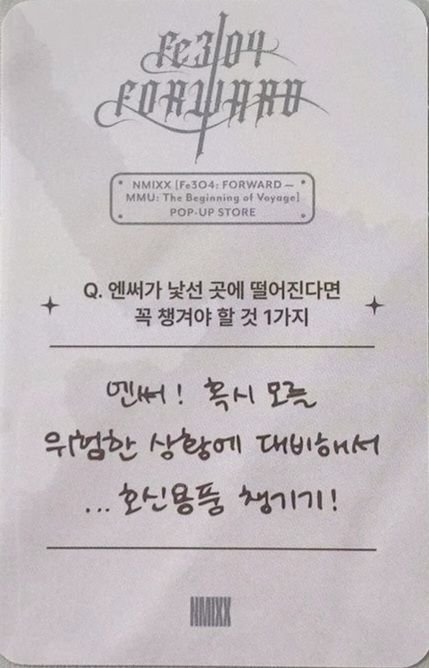 Fe3O4
FORWARD
NMIXX [Fe3O4: FORWARD —
MMU: The Beginning of Voyage]
POP-UP STORE
Q. 엔써가 낯선 곳에 떨어진다면
꼭 챙겨야 할 것 1가지
엔써! 혹시 모를
위험한 상황에 대비해서
...호신용품 챙기기!
NMIXX